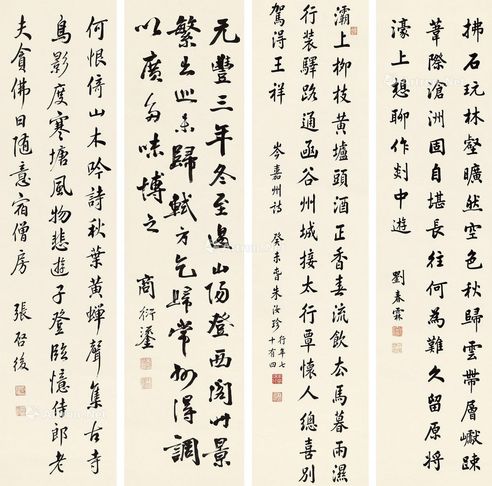 拂石玩林壑曠然空色秋歸雲帶層巘疎
葦際滄洲固自堪長往何為難久留原將
濠上想聊作剡中遊
劉春霖
灞上柳枝黃壚頭酒正香春流飲去馬暮雨濕
行裝驛路通函谷州城接太行覃懷人總喜別
駕得王祥
岑嘉州詩
癸未春朱汝珍
行年七
十有四
元豐三年冬至過山陽登西閣時景
繁出巡未歸軾方乞歸常州得調
以廣多味博之
商衍鎏
何恨倚山木吟詩秋葉黃蟬聲集古寺
鳥影度寒塘風物悲遊子登臨憶侍郎老
夫貪佛日隨意宿僧房
張啓後